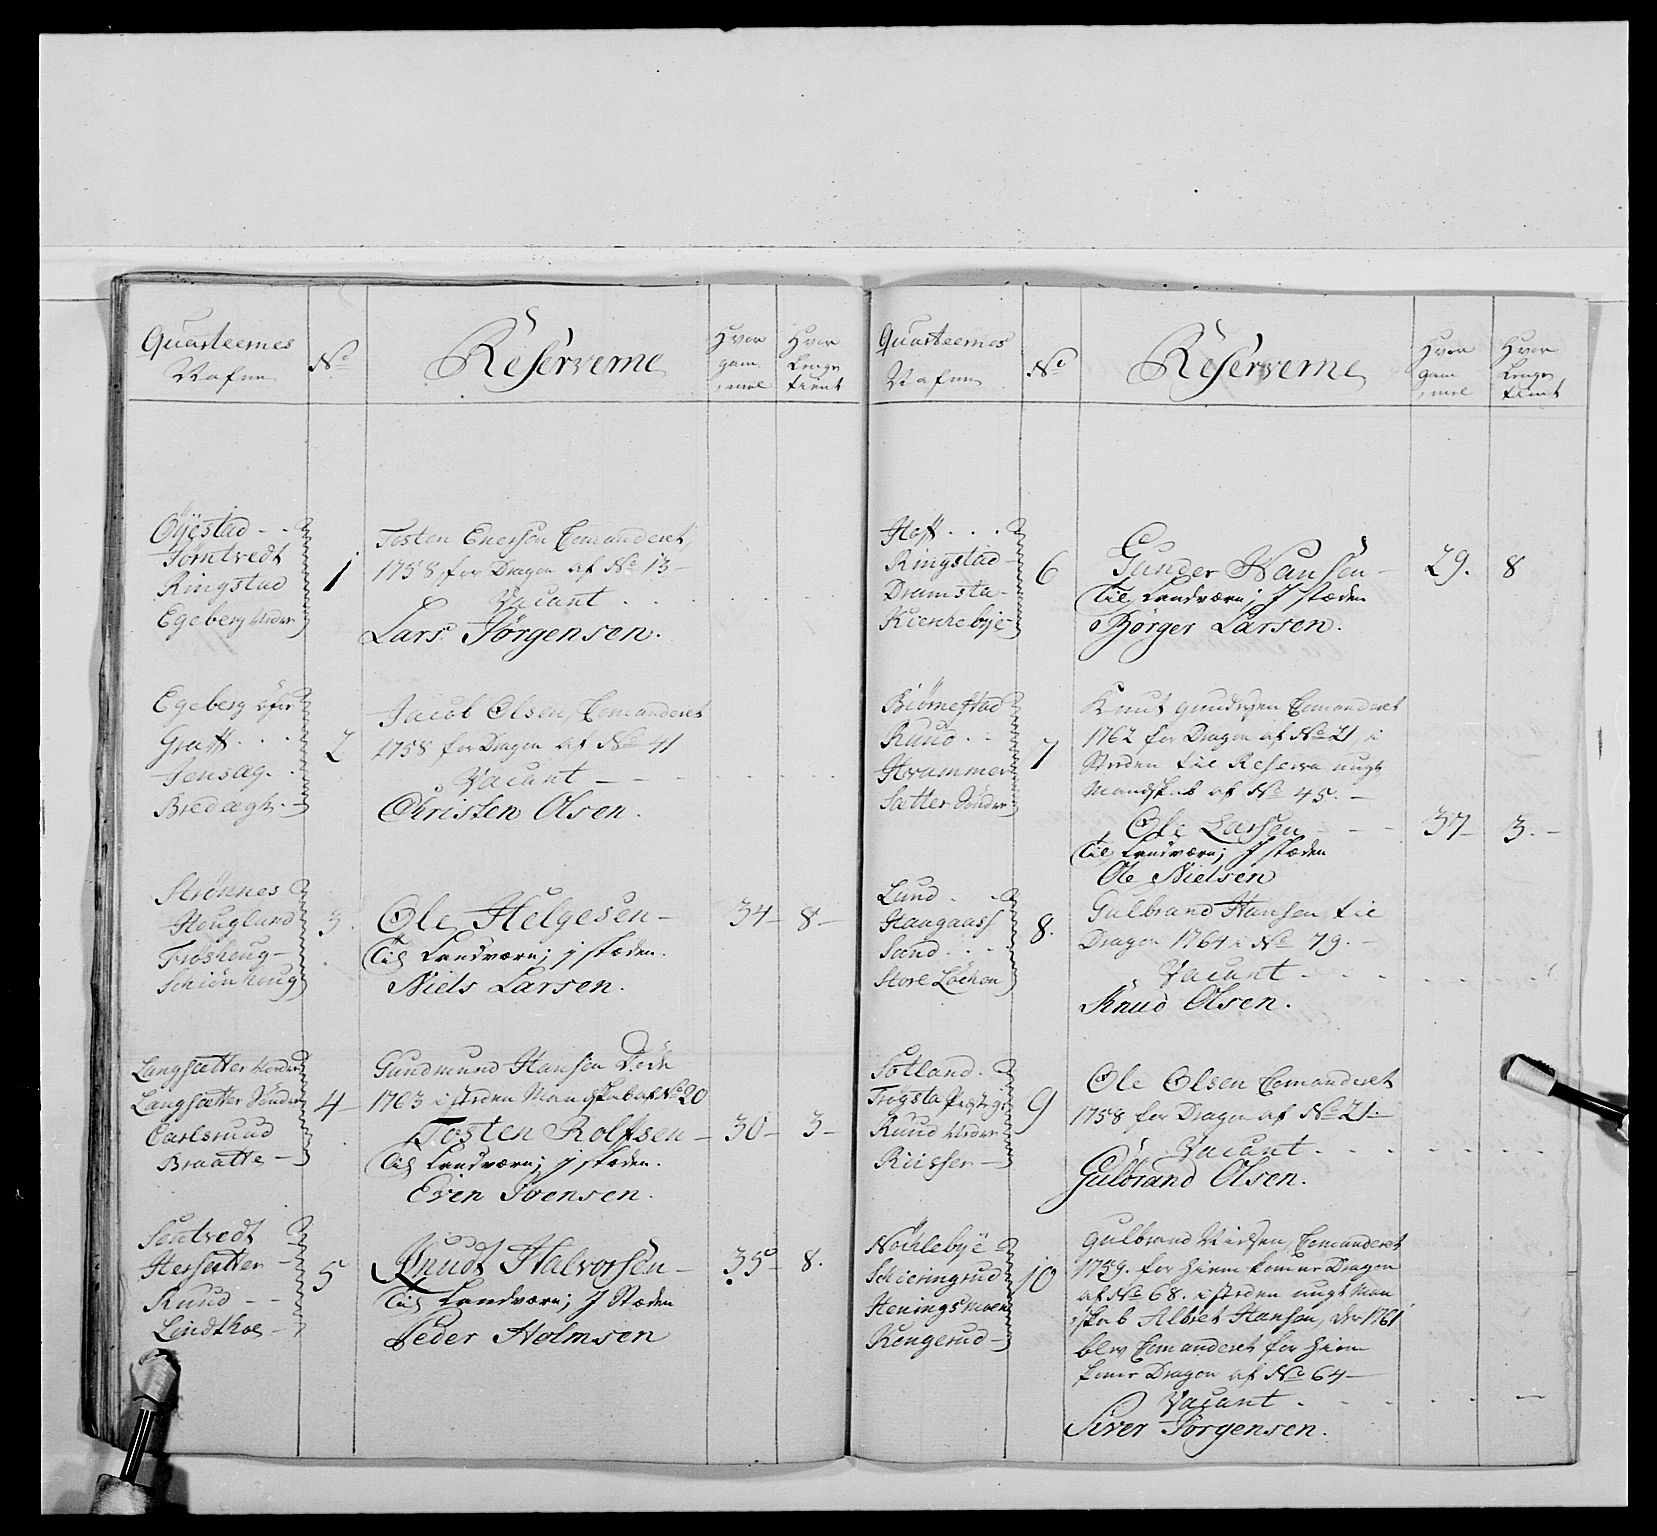 Quarteernes
Nafne
No
Reserverne
Hvor
gam
mel
Hvor
Lenge
tient
Øyestad
Tomtvedt
Ringstad
Egeberg Neder
1
Tosten Enersen Comanderet
1758 for Dragon af No 13
Vacant
Lars Jørgensen.
Egeberg Øfre
Graff
Jensag
Bredægh
2
Jacob Olsen, Comanderet
1758 for Dragon af No 41
Vacant
Christen Olsen.
Strønnes
Houglund
Frøshoug
Schiønhoug
3.
Ole Helgesen
34
8
Til Landværn; j stæden.
Niels Larsen.
Langsætter Norder
Langsætter Sønder
Carlsrud
Braatte
4
Gundmund Hansen Døde
1763 i steden Mandskab af No 20
Tosten Rolfsen
30
3
Til Landværn; j stæden.
Even Ivensen.
Soutvedt
Hersætter
Ruud
Lindthoe
5
Knudt Halvorsen
35
8.
Til Landværn; J Stæden
Peder Holmsen
Quarteernes
Nafne
No
Reserverne
Hvor
gam
mel
Hvor
Lenge
tient
Hoff
Ringstad
Dramsta
Kierkebye
6
Gunder Hansen
29.
8
Til Landværn; J stæden
Børger Larsen.
Biørnestad
Ruud
Hvammer
Sætter Sønder
7
Knut Gundersen Comanderet
1762 for Dragon af No 21 i
Steden til Reserva ungt
Mandskab af No 45.
Ole Larsen
37
3.
Til Landværn; J stæden
Ole Nielsen
Lund
Haugaass
Sand
Store Løchen
8.
Gulbrand Hansen til
Dragon 1764 i No 79.
Vacant
Knud Olsen.
Sotland
Trøgsta Præstegr
Ruud Neder
Riisser
9
Ole Olsen Comanderet
1758 for Dragon af No 21.
Vacant
Gulbrand Olsen.
Nochlebye
Schieringrud
Henings moen
Kengerud
10
Gulbrand Nielsen, Comanderet
1759. for hiemkomne Dragon
af No 68. i steden ungt Man
skab Albret Hansen, der 1761
blev Comanderet for hiem
komne Dragon af No 64
Vacant
Siver Jørgensen.